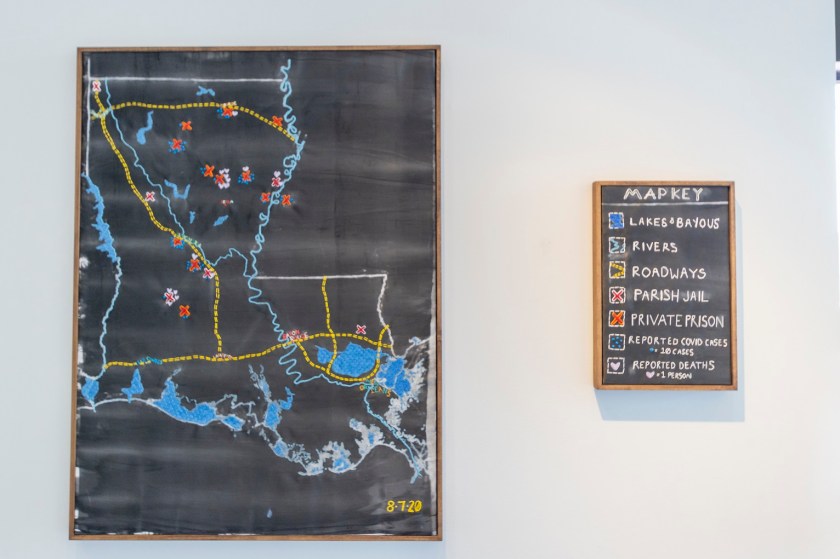 8·7·20
MAP KEY
LAKES & BAYOUS
RIVERS
ROADWAYS
PARISH JAIL
PRIVATE PRISON
REPORTED COVID CASES
= 10 CASES
REPORTED DEATHS
= 1 PERSON